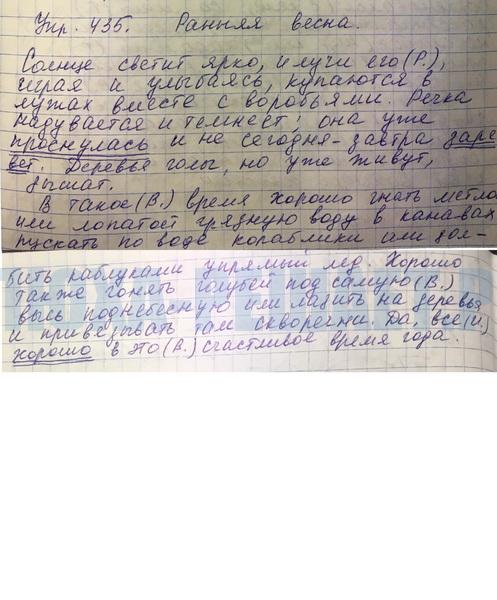 Упр. 435. Ранняя весна.
Солнце светит ярко, и лучи его (Р.),
играя и улыбаясь, купаются в
лужах вместе с воробьями. Речка
надувается и темнеет; она уже
проснулась и не сегодня-завтра заре-
вет. Деревья голы, но уже живут,
дышат.
В такое (В.) время хорошо гнать метлой
или лопатой грязную воду в канавах
пускать по воде кораблики или дол-
бить каблуками упрямый лед. Хорошо
также гонять голубей под самую (В.)
высь поднебесную или лазить на деревья
и привязывать там скворечни. Да, все (И.)
хорошо в это (В.) счастливое время года.